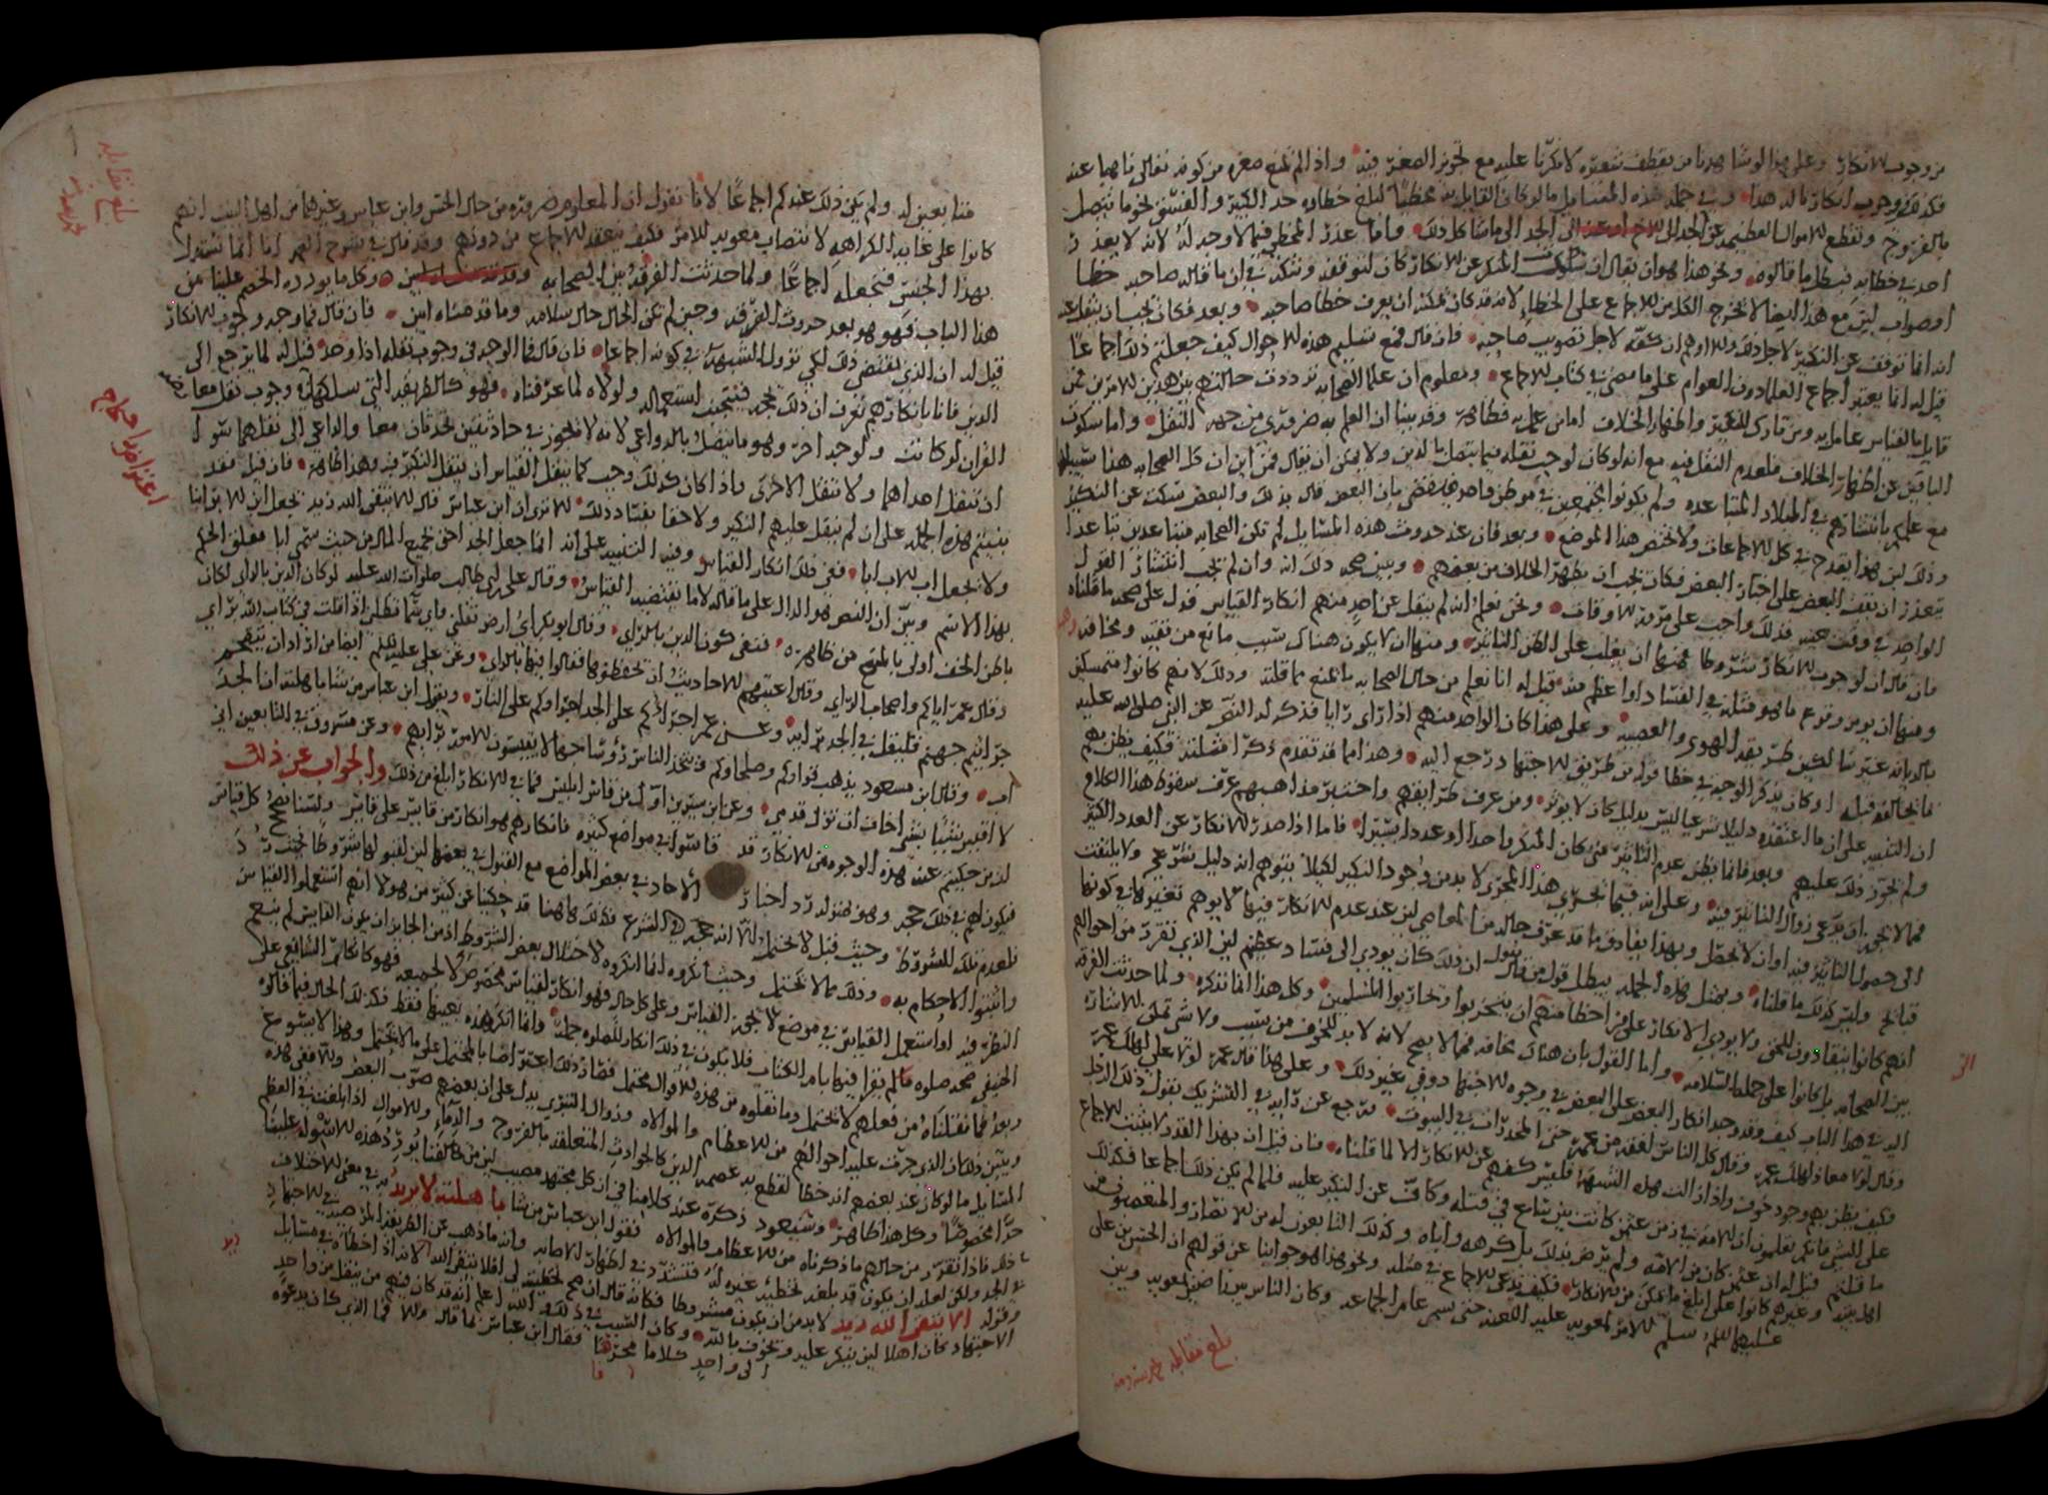 من وجوب الانكار وعلى هذا لو شاهدنا من يقطف شعيره لانكرنا عليه مع تجويز الصغر فيه واذا لم تمنع صغره من كونه تعالى ناهيا عنه
فكذلك وجوب انكار ما له هذا وفي جملة هذه المسايل ما لو كان القايل به مخطيا لبلغ خطاؤه حد الكبير والفسق لنحو ما يتصل
بالفروج وتقطع الاموال العظيمه عن الجد الى الاخ او عن الى الجد الى ما شاكل ذلك واما عذر المخطي فيما لا وجه له لانه لا يعذر
احد في خطايه فبطل ما قالوه ونحو هذا هو ان يقال ان سكوت المنكر عن الانكار كان لتوقفه وشكه في ان ما قاله صاحبه خطا
او صواب ليس مع هذا ايضا لا تخرج الكل من الاجماع على الخطا لانه قد كان يمكنه ان يعرف خطا صاحبه وبعد فكان يجب ان ينقل عنه
انه انما توقف عن النكير لاجل ذلك ولا اوهم ان كفه لاجل تصويب صاحبه فان قال فمع تسليم هذه الاحوال كيف جعلتم ذلك اجماعا
قيل له انا يعتبر اجماع العلما دون العوام على ما مضى في كتاب الاجماع ومعلوم ان علما الصحابه ترددت حالتهم بين هذين الامرين فمن
قايل بالقياس عامل به ومن تارك للنكير واظهار الخلاف اما من عمل به فظاهر وقد بينا ان العلم به ضروري من جهه النقل واما سكوت
الباقين عن اظهار الخلاف فلعدم النقل فيه مع انه لو كان لوجب نقله فيما يتصل بالدين ولا يمكن ان يقال فمن اين ان كل الصحابه هذا سبيله
مع علمكم بانتشارهم في البلاد المتباعده ولم يكونوا مجتمعين في موطن واحد فيقضى بان البعض قال بذلك والبعض سكت عن النكير
وذلك لان هذا يقدح في كل الاجماعات ولا تختص هذا الموضع وبعد فان عند حدوث هذه المسايل لم تكن الصحابه متباعدين تباعدا
يتعذر ان يقف البعض على اخبار البعض فكان يجب ان يظهر الخلاف من بعضهم ويبين صحه ذلك انه وان لم تجب انتشار القول
الواحد في وقت حينه فذلك واجب على مر الاوقات ونحن نعلم انه لم ينقل عن احد منهم انكار القياس فدل على صحه ما قلناه
فان قال ان لوجوب الانكار شروطا منها ان يغلب على الظن التاثير ومنها ان لا يكون هناك سبب مانع من تقيه ومخافه
ومنها ان يومن وقوع ما هو مثله في الفساد او اعظم منه قيل له انا نعلم من حال الصحابه ما يمنع مما قلته وذلك لانهم كانوا متمسكين
بالديانه غير سالكين طريقه الهوى والعصبيه وعلى هذا كان الواحد منهم اذا راى رايا فذكر له النص عن النبي صلى الله عليه
ما يخالفه قبله او كان يذكر الوجه في خطا قوله من طريق الاجتهاد رجع اليه وهذا مما قد تقدم ذكر امثلته فكيف يظن بهم
ان التنبيه على ان ما اعتقده دليلا شرعيا ليس بدليل كان لا يوثر ومن عرف طرايقهم واختبر مذاهبهم عرف سقوط هذا الكلام
ولم تجوز ذلك عليهم وبعد فانما يظن عدم التاثير متى كان المنكر واحدا او عددا يسيرا فاما اذا صدر الانكار عن العدد الكثير
فمما لا يجي ان يدعى زوال التاثير فيه وعلى انه فيما يجري هذا المجرى لا بد من وجود النكير لكيلا يتوهم انه دليل شرعي ولا يلتفت
الى حصول التاثير فيه او ان لا يحصل وبهذا يفارق ما قد عرف حاله من المعاصي لان عند عدم الانكار فيها لا يوهم تغيرها في كونها
قبايح وليس كذلك ما قلناه وبمثل هذه الجمله يبطل قول من قال يقول ان ذلك كان يودي الى فساد عظيم لان الذي تقرر من احوالهم
انهم كانوا ينقادون للحق ولا يودي الانكار على من اخطا منهم ان يتحزبوا وتحاربوا المسلمين وكل هذا انما نذكره ولما حدثت الفرقه
بين الصحابه بل كانوا على جمله السلامه واما القول بان هناك مخافه فمما لا يصح لانه لا بد للخوف من سبب ولا شي تمكن الاشاره
اليه في هذا الباب كيف وقد وجد انكار البعض على البعض في وجوه الاجتهاد وفي غير ذلك وعلى هذا قال عمر لولا علي لهلك عمر
وقال لولا معاذ لهلك عمر وقال كل الناس افقه من عمر حتى المخدرات في البيوت ورجع عن رايه في التشريك بقول ذلك الرجل
فكيف يظن بهم وجود خوف واذا زالت هذه الشبهه فليس كفهم عن الانكار الا لما قلناه فان قيل ان بهذا القدر لا يثبت الاجماع
على الشي فانكم تعلمون ان الامه في زمن عثمن كانت بين شايع في قتله وكاف عن النكير عليه فلما لم يكن ذلك اجماعا فكذلك
ما قلتم قيل له ان عثمن كان من الامه ولم يرض بذلك بل كرهه واباه وكذلك التابعون له من الانصار والمتعصبون من
اهل بيته وغيرهم كانوا على ابلغ ما يمكن من الانكار فكيف يدعى الاجماع في مثله ونحو هذا هو جوابنا عن قولهم ان الحسن بن علي
عليهما السلم سلم الامر لمعويه عليه اللعنه حتى سمي عام الجماعه وكان الناس بين راض بمعويه وبين
بلغ مقابله
متابعين له ولم يكن ذلك عندكم اجماعا لانا نقول ان المعلوم ضروره من حال الحسن وابن عباس وغيرهما من اهل البيت انهم
كانوا على غايه الكراهه لانتصاب معويه للامر فكيف ينعقد الاجماع من دونهم وقد قال في شرح العمد انا انما نستدل
بهذا الجنس فنجعله اجماعا ولما حدثت الفرقه بين الصحابه وكل ما يورده الخصم علينا من
هذا الباب فهو هو بعد حدوث الفرقه وحين لم تكن الحال حال سلامه وما قدمناه ابين فان قال فما وجه وجوب الانكار
قيل له ان الذي يقتضي ذلك لكي تزول الشبهه في كونه اجماعا فان قال فما الوجه في وجوب نقله اذا وجد قيل له لما يرجع الى
الدين فانا بانكارهم نعرف ان ذلك تحرم فنتجنب استعماله ولولاه لما عرفناه فهو كالطريقه التي سلكها في وجوب نقل معارضه
القران لو كانت ولوجه اخر وهو ما يتصل بالدواعي لانه لا تجوز في حادثتين تحدثان معا والداعي الى نقلهما سوا
ان تنقل احداهما ولا تنقل الاخرى واذا كان كذلك وجب كما ينقل القياس ان ينقل النكير فيه وهذا ظاهر فان قيل فقد
بنيتم هذه الجمله على ان لم ينقل عليهم النكير ولا خفا بفساد ذلك الا ترى ان ابن عباس قال الا يتقي الله زيد يجعل ابن الابن ابنا
ولا يجعل اب الاب ابا ففي ذلك انكار القياس وفيه التنبيه على انه انما جعل الجد احق بجميع المال من حيث سمي ابا فعلق الحكم
بهذا الاسم وبين ان النص هو الدال على ما قاله لا ما يقتضيه القياس وقال علي بن ابي طالب صلوات الله عليه لو كان الدين بالراي لكان
باطن الخف اولى بالمسح من ظاهره فنفى كون الدين بالراي وقال ابو بكر اي ارض تقلني واي سما تظلني اذا قلت في كتاب الله براي
وقال عمر اياكم واصحاب الراي وقال اعيتهم الاحاديث ان يحفظوها فقالوا فيها بالراي وعن علي عليه السلم ايضا من اراد ان يتقحم
جراثيم جهنم فليقل في الجد برايه وعن عمر اجراكم على الجد اجراوكم على النار ويقول ابن عباس من شا باهلته ان الجد
اب وقال ابن مسعود يذهب قراوكم وصلحاوكم فيتخذ الناس رؤسا جهالا يقيسون الامور برايهم وعن مسروق في التابعين اني
لا اقيس شيئا بشي اخاف ان تزل قدمي وعن ابن سيرين اول من قاس ابليس فما في الانكار ابلغ من ذلك والجواب عن ذلك
لان من حكيتم عنه هذه الوجوه من الانكار قد قاسوا في مواضع كثيره فانكارهم هو انكار من قايس على قايس ولسنا نصحح كل قياس
فيكون لهم في ذلك حجه وهو بمنزله رد اخبار الاحاد في بعض المواضع مع القبول في بعضها لان لقبولها شروطا يجنب رد
فلعدم تلك الشروط وحيث قبل لا يحتمل الا انه حجه في الشرع فكذلك هاهنا قد حكينا عن كثير من هولا انهم استعملوا القياس
واثبتوا الاحكام به وذلك مما لا يحتمل وحيث انكروه انما انكروه لاختلال بعض الشروط اذ من الجايز ان يكون القايس لم ينعم
النظر فيه او استعمل القياس في موضع لا يجوز القياس وعلى كل حال فهو انكار لقياس مخصوص لا لجميعه فهو كانكار الشافعي على
الحنفي صحه صلوه ما لم يقرا فيها بام الكتاب فلا يكون في ذلك انكار للصلوه جمله وانما انكر هذه بعينها فقط فكذلك الحال فيما قالوه
وبعد فما نقلناه من فعلهم لا يحتمل وما نقلوه من هذه الاقوال محتمل فصار ذلك اعتراضا بالمحتمل على ما لا يحتمل وهذا لا يسوغ
ويبين ذلك ان الذي جرت عليه احوالهم من الاعظام والموالاه وزوال التبري يدل على ان بعضهم صوب البعض والا ففي هذه
المسايل ما لو كان عند بعضهم انه خطا لقطع به عصمه الدين كالحوادث المتعلقه بالفروج والدما والاموال اذا بلغت في العظم
حدا مخصوصا وكل هذا ظاهر وسنعود ذكره عند كلامنا في ان كل مجتهد مصيب لان من خالفنا يورد هذه الاسوله علينا
فاذا تقرر من حالهم ما ذكرناه من الاعظام والموالاه فقول ابن عباس من شا باهلته لا يريد به في نفي الاختلاف
في الجد ولكن لعله ان يكون قد بلغه تخطيه غيره له فتشدد في اظهار الاصابه وانه ما ذهب عن الطريقه المرضيه في الاجتهاد
وقوله الا يتقي الله زيد لا بد من ان يكون مشروطا فكانه قال ان صح تخطيته لي افلا يتقي الله لانه اذا خطاه في مسايل
الاجتهاد كان اهلا لان ينكر عليه ويخوف بالله وكان السبب في ذلك والله اعلم انه قد كان فيهم من ينقل من واحد
الى واحد كلاما محرفا فقال ابن عباس ما قاله والا فما الذي كان يدعوه